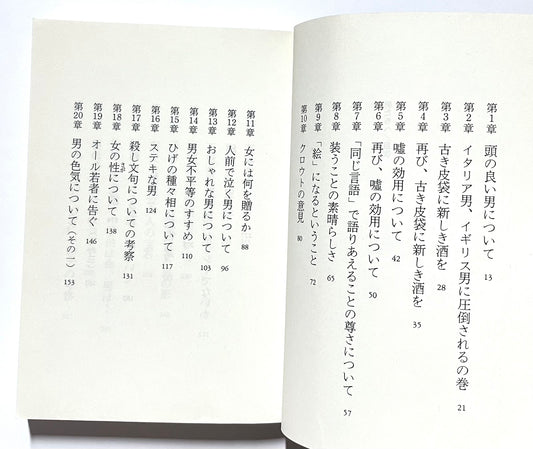 第1章 頭の良い男について 13
第2章 イタリア男、イギリス男に圧倒されるの巻 21
第3章 古き皮袋に新しき酒を 28
第4章 再び、古き皮袋に新しき酒を 35
第5章 嘘の効用について 42
第6章 再び、嘘の効用について 50
第7章 「同じ言語」で語りあえることの尊さについて 57
第8章 装うことの素晴らしさ 65
第9章 「絵」になるということ 72
第10章 クロウトの意見 80
第11章 女には何を贈るか 88
第12章 人前で泣く男について 96
第13章 おしゃれな男について 103
第14章 男女不平等のすすめ 110
第15章 ひげの種々相について 117
第16章 ステキな男 124
第17章 殺し文句についての考察 131
第18章 女の性について 138
第19章 オール若者に告ぐ 146
第20章 男の色気について(その一) 153